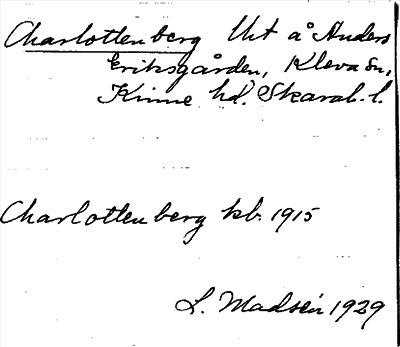 Charlottenberg Uht å Anders
Eriksgården, Kleva sn,
Kinne hd. Skarab. l.
Charlottenberg kb. 1915
L. Madsén 1929